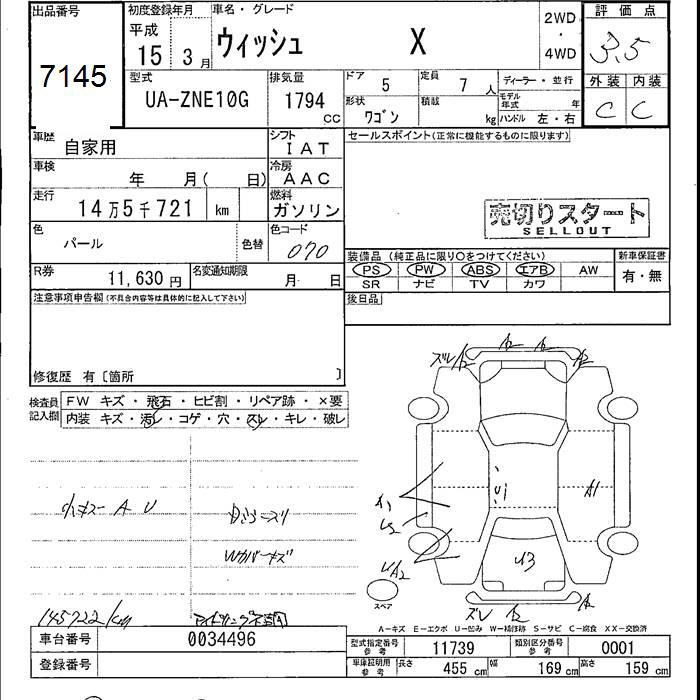 出品番号
7145
初度登録年月
平成
15 3月
車名・グレード
ウィッシュ X
2WD
・
4WD
評価点
3.5
外装 内装
C C
型式
UA-ZNE10G
排気量
1794
CC
ドア 5
定員 7 人
形状 ワゴン
積載 kg
ディーラー・並行
モデル年式 年
ハンドル 左・右
車歴 自家用
シフト IAT
車検 年 月( 日)
冷房 AAC
走行 14万5千721 km
燃料 ガソリン
色 パール 色替
色コード 070
R券 11,630円
名変通知期限 月 日
セールスポイント(正常に機能するものに限ります)
売切りスタート
SELLOUT
装備品 (純正品に限り○をつけてください)
PS PW ABS エアB AW
SR ナビ TV カワ
新車保証書
有・無
後日品
注意事項申告欄(不具合内容等は具体的に記入して下さい)
修復歴 有〔箇所 〕
検査員記入欄
FW キズ・飛石・ヒビ割・リペア跡・×要
内装 キズ・汚レ・コゲ・穴・スレ・キレ・破レ
小キズ A U
Wカバーキズ
145722km
ズレ A2 A2 A2 A2
A1
U1
A1
U2
UA2
U3
ズレ A2
スペア
A-キズ E-エクボ U-凹み W-補修跡 S-サビ C-腐食 XX-交換済
車台番号 0034496
登録番号
型式指定番号 参考 11739
類別区分番号 参考 0001
車庫証明用 参考 長さ 455 cm 幅 169 cm 高さ 159 cm